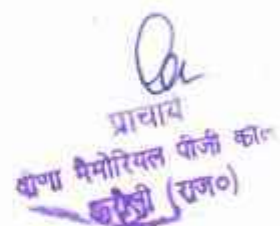 प्राचार्य
वीणा मैमोरियल पीजी का०
करौली (राज०)